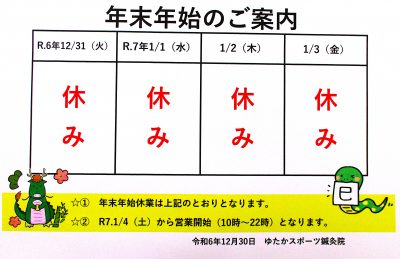 年末年始のご案内
R.6年12/31（火） R.7年1/1（水） 1/2（木） 1/3（金）
休み 休み 休み 休み
☆① 年末年始休業は上記のとおりとなります。
☆② R7.1/4（土）から営業開始（10時～22時）となります。
巳
令和6年12月30日 ゆたかスポーツ鍼灸院